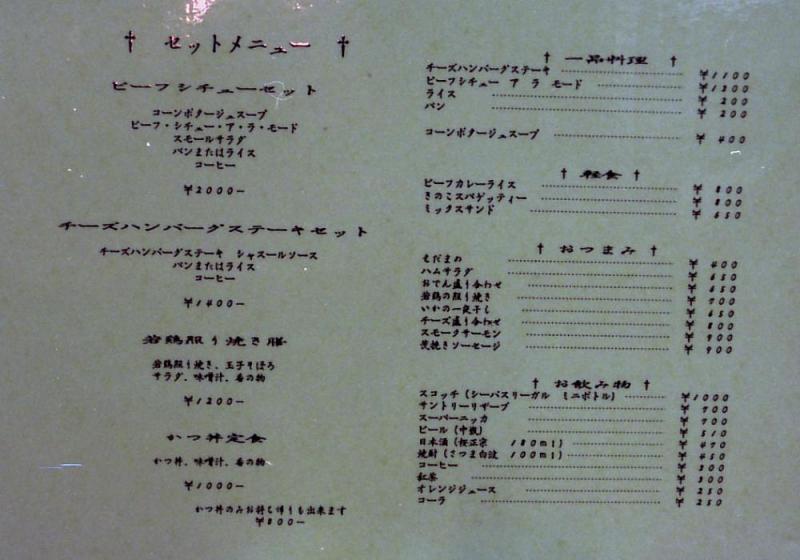 † セットメニュー †
ビーフシチューセット
コーンポタージュスープ
ビーフ・シチュー・ア・ラ・モード
スモールサラダ
パンまたはライス
コーヒー
¥2000−
チーズハンバーグステーキセット
チーズハンバーグステーキ シャスールソース
パンまたはライス
コーヒー
¥1400−
若鶏照り焼き膳
若鶏照り焼き、玉子そぼろ
サラダ、味噌汁、香の物
¥1200−
かつ丼定食
かつ丼、味噌汁、香の物
¥1000−
かつ丼のみお持ち帰りも出来ます
¥800−
† 一品料理 †
チーズハンバーグステーキ ¥1100
ビーフシチュー ア ラ モード ¥1200
ライス ¥200
パン ¥200
コーンポタージュスープ ¥400
† 軽食 †
ビーフカレーライス ¥800
きのこスパゲッティー ¥800
ミックスサンド ¥650
† おつまみ †
えだまめ ¥400
ハムサラダ ¥650
おでん盛り合わせ ¥650
若鶏の照り焼き ¥700
いかの一夜干し ¥650
チーズ盛り合わせ ¥800
スモークサーモン ¥900
荒挽きソーセージ ¥900
† お飲み物 †
スコッチ(シーバスリーガル ミニボトル) ¥1000
サントリーリザーブ ¥700
スーパーニッカ ¥700
ビール(中瓶) ¥510
日本酒(桜正宗 180ml) ¥470
焼酎(さつま白波 100ml) ¥450
コーヒー ¥300
紅茶 ¥300
オレンジジュース ¥250
コーラ ¥250